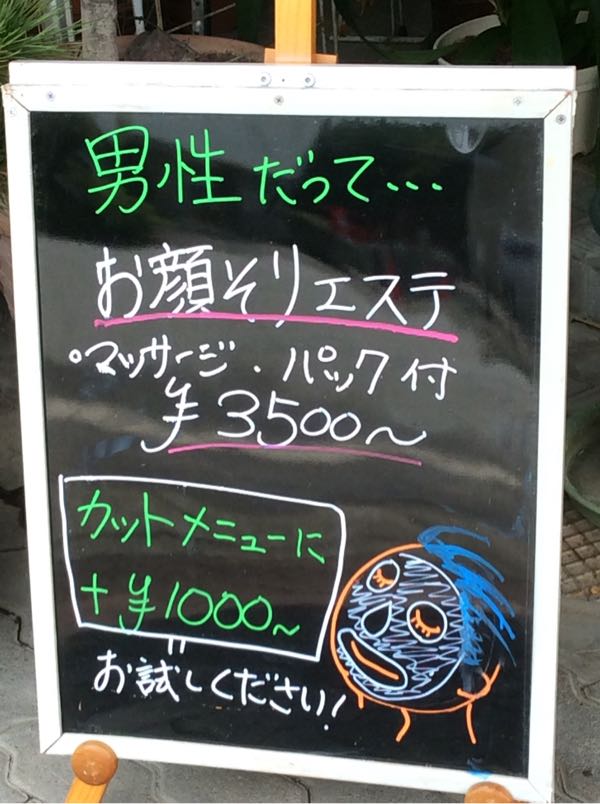 男性だって…
お顔そりエステ
°マッサージ・パック付
¥3500~
カットメニューに
+¥1000~
お試しください!